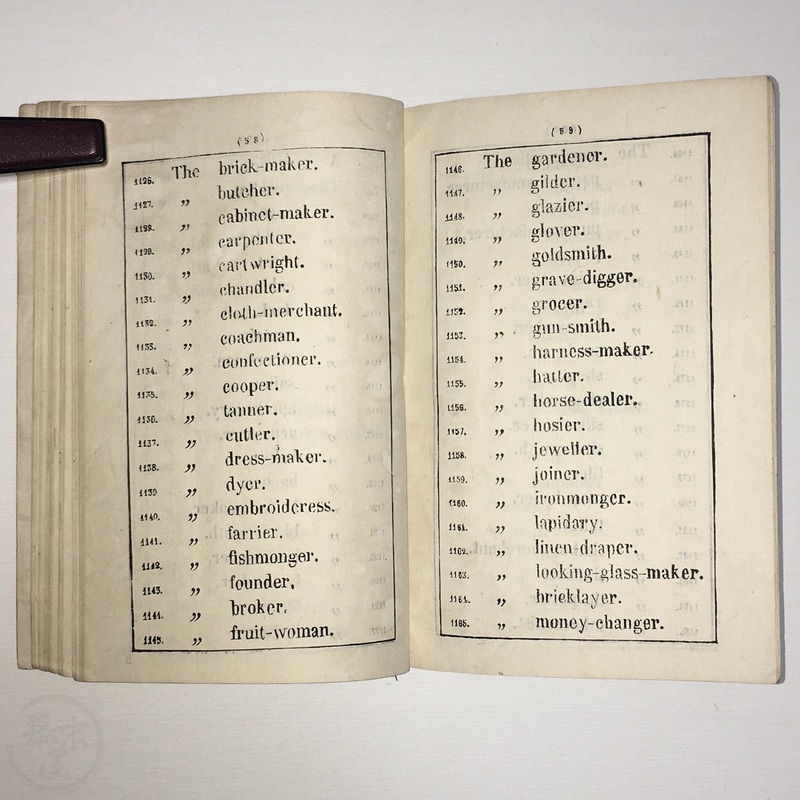 (58)
1126. The brick-maker.
1127. „ butcher.
1128. „ cabinet-maker.
1129. „ carpenter.
1130. „ cartwright.
1131. „ chandler.
1132. „ cloth-merchant.
1133. „ coachman.
1134. „ confectioner.
1135. „ cooper.
1136. „ tanner.
1137. „ cutler.
1138. „ dress-maker.
1139 „ dyer.
1140. „ embroideress.
1141. „ farrier.
1142. „ fishmonger.
1143. „ founder.
1144. „ broker.
1145. „ fruit-woman.
(59)
1146. The gardener.
1147. „ gilder.
1148. „ glazier.
1149. „ glover.
1150. „ goldsmith.
1151. „ grave-digger.
1152. „ grocer.
1153. „ gun-smith.
1154. „ harness-maker.
1155. „ hatter.
1156. „ horse-dealer.
1157. „ hosier.
1158. „ jeweller.
1159. „ joiner.
1160. „ ironmonger.
1161. „ lapidary.
1162. „ linen-draper.
1163. „ looking-glass-maker.
1164. „ bricklayer.
1165. „ money-changer.
幕末屋